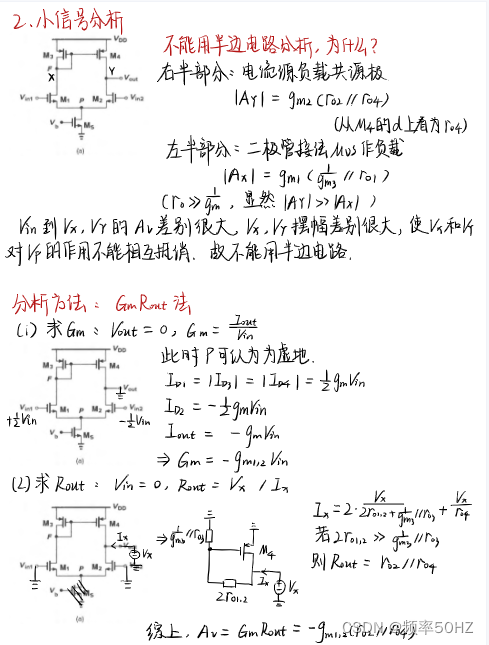 2.小信号分析
不能用半边电路分析,为什么?
右半部分:电流源负载共源极
|Ay|=gm2(ro2//ro4)
(从M4的d上看为ro4)
左半部分:二极管接法MOS作负载
|Ax|=gm1(1/gm3//ro1)
(ro≫1/gm,显然|Ay|≫|Ax|)
Vin到Vx,Vy的Av差别很大,Vx,Vy摆幅差别很大,使Vx和Vy
对Vp的作用不能相互抵消.故不能用半边电路.
VDD
M3
M4
X
Y
Vout
Vin1
M1
P
M2
Vin2
Vb
M5
(a)
分析方法:GmRout法
(1)求Gm:Vout=0,Gm=Iout/Vin
此时P可认为为虚地.
ID1=|ID3|=|ID4|=1/2gmVin
ID2=-1/2gmVin
Iout=-gmVin
⇒Gm=-gm1,2Vin
VDD
M3
M4
F
Vout
Vin1
M1
P
M2
Vin2
+1/2Vin
-1/2Vin
Vb
M5
(a)
(2)求Rout:Vin=0,Rout=Vx/Ix
VDD
M3
M4
F
Ix
Vx
Vin1
M1
P
M2
Vb
(a)
⇒1/gm3//ro3
M4
2ro1,2
Ix
Vx
Ix=2·Vx/(2ro1,2+1/gm3//ro3)+Vx/ro4
若2ro1,2≫1/gm3//ro3
则Rout=ro2//ro4
综上,Av=GmRout=-gm1,2(ro2//ro4)
CSDN @频率50HZ